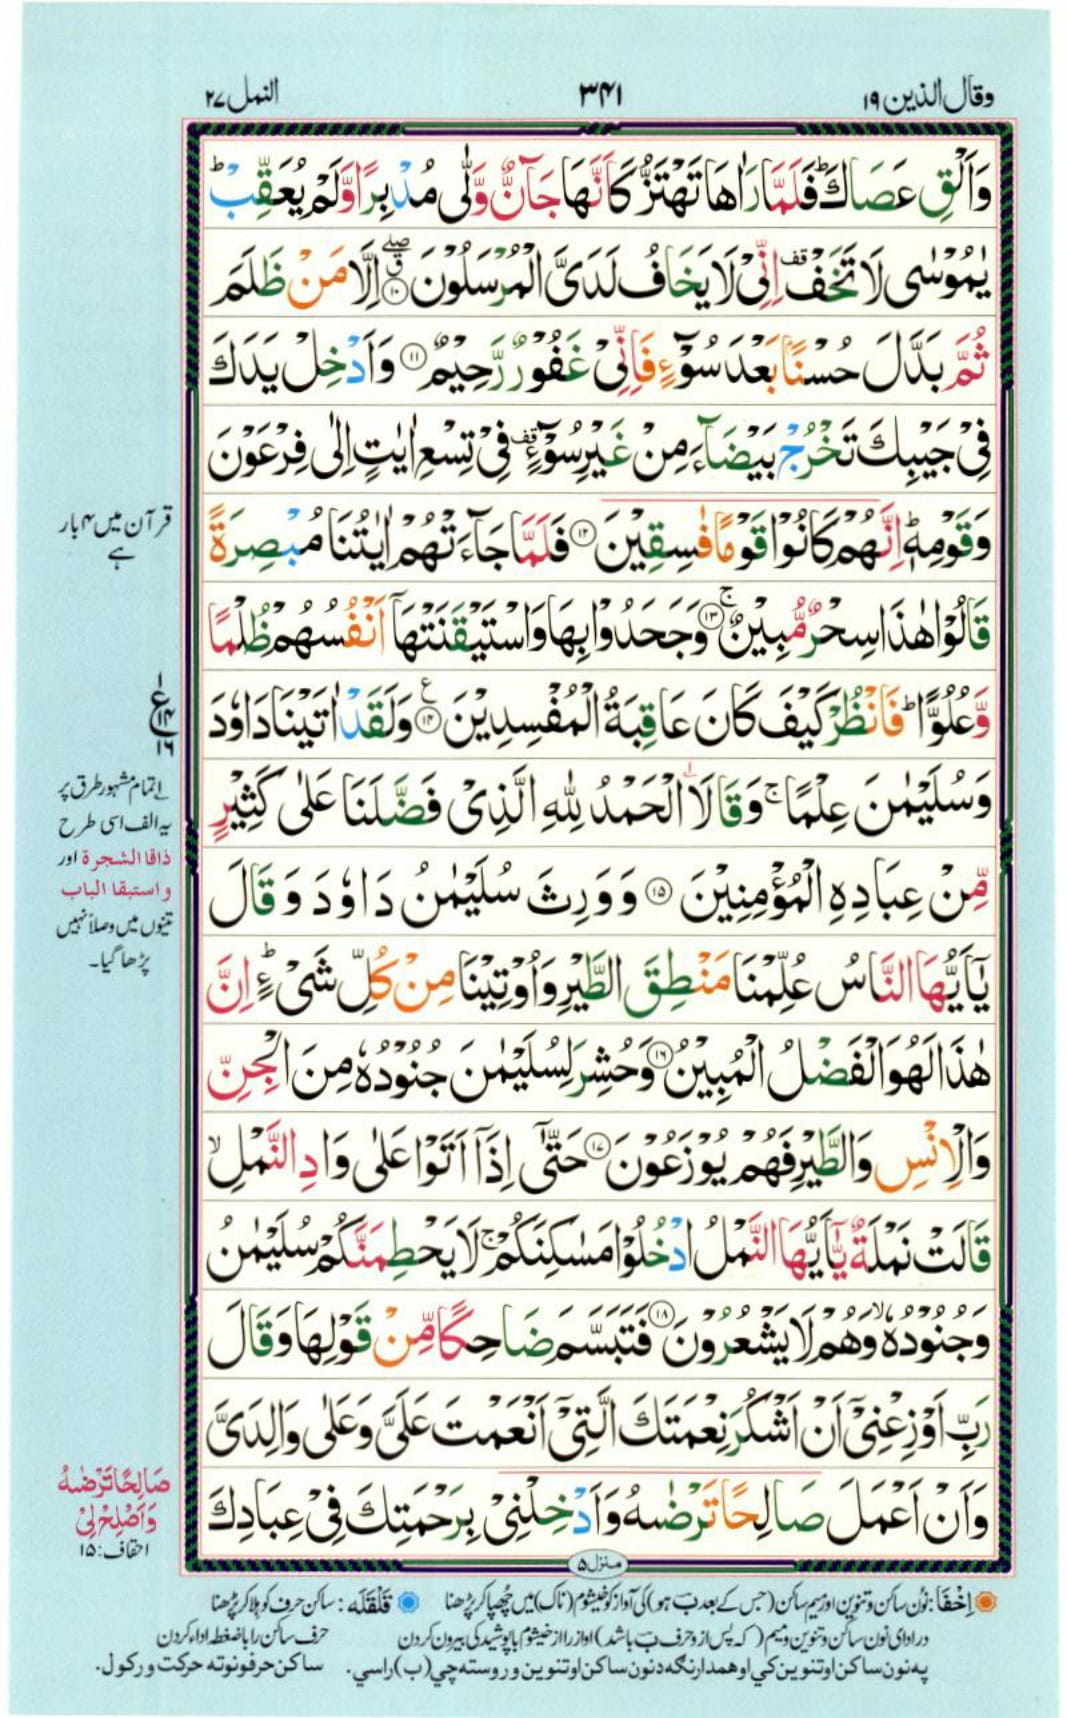 وقال الذين ۱۹
۳۴۱
النمل ۲۷
وَاَلْقِ عَصَاكَ ؕ فَلَمَّا رَاٰهَا تَهْتَزُّ كَاَنَّهَا جَآنٌّ وَّلّٰى مُدْبِرًا وَّلَمْ يُعَقِّبْ ؕ
يٰمُوْسٰى لَا تَخَفْ قف اِنِّىْ لَا يَخَافُ لَدَىَّ الْمُرْسَلُوْنَ ۱۰ اِلَّا مَنْ ظَلَمَ
ثُمَّ بَدَّلَ حُسْنًاۢ بَعْدَ سُوْٓءٍ فَاِنِّىْ غَفُوْرٌ رَّحِيْمٌ ۱۱ وَاَدْخِلْ يَدَكَ
فِىْ جَيْبِكَ تَخْرُجْ بَيْضَآءَ مِنْ غَيْرِ سُوْٓءٍ قف فِىْ تِسْعِ اٰيٰتٍ اِلٰى فِرْعَوْنَ
وَقَوْمِهٖ ؕ اِنَّهُمْ كَانُوْا قَوْمًا فٰسِقِيْنَ ۱۲ فَلَمَّا جَآءَتْهُمْ اٰيٰتُنَا مُبْصِرَةً
قَالُوْا هٰذَا سِحْرٌ مُّبِيْنٌ ۚ ۱۳ وَجَحَدُوْا بِهَا وَاسْتَيْقَنَتْهَآ اَنْفُسُهُمْ ظُلْمًا
وَّعُلُوًّا ؕ فَانْظُرْ كَيْفَ كَانَ عَاقِبَةُ الْمُفْسِدِيْنَ ۱۴ ع وَلَقَدْ اٰتَيْنَا دَاوٗدَ
وَسُلَيْمٰنَ عِلْمًا ۚ وَقَالَا الْحَمْدُ لِلّٰهِ الَّذِىْ فَضَّلَنَا عَلٰى كَثِيْرٍ
مِّنْ عِبَادِهِ الْمُؤْمِنِيْنَ ۱۵ وَوَرِثَ سُلَيْمٰنُ دَاوٗدَ وَقَالَ
يٰٓاَيُّهَا النَّاسُ عُلِّمْنَا مَنْطِقَ الطَّيْرِ وَاُوْتِيْنَا مِنْ كُلِّ شَىْءٍ ؕ اِنَّ
هٰذَا لَهُوَ الْفَضْلُ الْمُبِيْنُ ۱۶ وَحُشِرَ لِسُلَيْمٰنَ جُنُوْدُهٗ مِنَ الْجِنِّ
وَالْاِنْسِ وَالطَّيْرِ فَهُمْ يُوْزَعُوْنَ ۱۷ حَتّٰٓى اِذَآ اَتَوْا عَلٰى وَادِ النَّمْلِ ۙ
قَالَتْ نَمْلَةٌ يّٰٓاَيُّهَا النَّمْلُ ادْخُلُوْا مَسٰكِنَكُمْ ۚ لَا يَحْطِمَنَّكُمْ سُلَيْمٰنُ
وَجُنُوْدُهٗ ۙ وَهُمْ لَا يَشْعُرُوْنَ ۱۸ فَتَبَسَّمَ ضَاحِكًا مِّنْ قَوْلِهَا وَقَالَ
رَبِّ اَوْزِعْنِىْٓ اَنْ اَشْكُرَ نِعْمَتَكَ الَّتِىْٓ اَنْعَمْتَ عَلَىَّ وَعَلٰى وَالِدَىَّ
وَاَنْ اَعْمَلَ صَالِحًا تَرْضٰىهُ وَاَدْخِلْنِىْ بِرَحْمَتِكَ فِىْ عِبَادِكَ
منزل ۵
قرآن میں ۴ بار
ہے
۱
ع
۱۴
۱۶
اتمام مشہور طرق پر
یہ الف اسی طرح
ذاقا الشجرة اور
واستبقا الباب
تینوں میں وصلاً نہیں
پڑھا گیا۔
صَالِحًا تَرْضٰىهُ
وَاَصْلِحْ لِىْ
احقاف: ۱۵
اِخْفَا: نُون ساکن و تنوین اور میم ساکن (جس کے بعد ب ہو) کی آواز کو خیشوم (ناک) میں چُھپا کر پڑھنا
قَلْقَلَه: ساکن حرف کو ہلا کر پڑھنا
در ادای نون ساکن و تنوین و میم (که پس از و حرف ب باشد) آواز را از خیشوم با پوشیدگی بیرون کردن
حرف ساکن را با ضغطه ادا کردن
په نون ساکن او تنوین کي او همدارنگه د نون ساکن او تنوین وروسته چي (ب) راسي.
ساکن حرفونو ته حرکت ورکول.